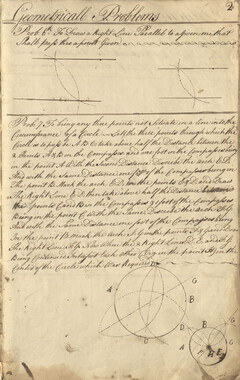 2
Geometricall Problems
Prob. 6th To Draw a Right Line Parallel to a given one that
Shall pass thro a point Given
Prob 7 To bring any three points not Situate in a line into the
Circumference of a Circle Let the three points through which the
Circle is to pass be A B C take above half the Distance between the
2 Points A & B in the Compasses and one foot on the Compasses being
in the point A With the Same Distance Describe the arch E D
And with the Same Distance one foot of the Compasses being in
The point B Mark the arch E D in the points E & D and Draw
The Right Line E D then take above half the Distance between
the 2 points C and B in the Compasses & foot of the Compasses
Being in the point C With the Same Describe the arch
And with the Same Distance one foot of the Compasses being
In the point B mark the arch in the points
The Right Line Now Where the 2 Right Lines
Being Continued Intersect Each other in the point H is the
Center of the Circle which Was Required
A
G
B
E
D
B
G
A
H
E